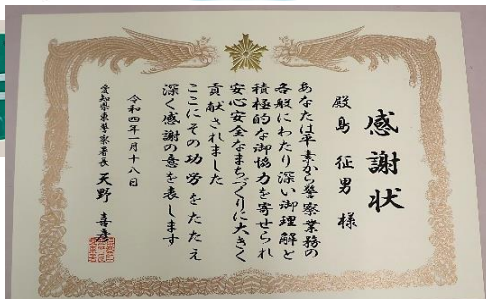 感謝状
殿島 征男 様
あなたは平素から警察業務の
各般にわたり深い御理解と
積極的な御協力を寄せられ
安心安全なまちづくりに大きく
貢献されました
ここにその功労をたたえ
深く感謝の意を表します
令和四年一月十八日
愛知県東警察署長 天野 喜彦